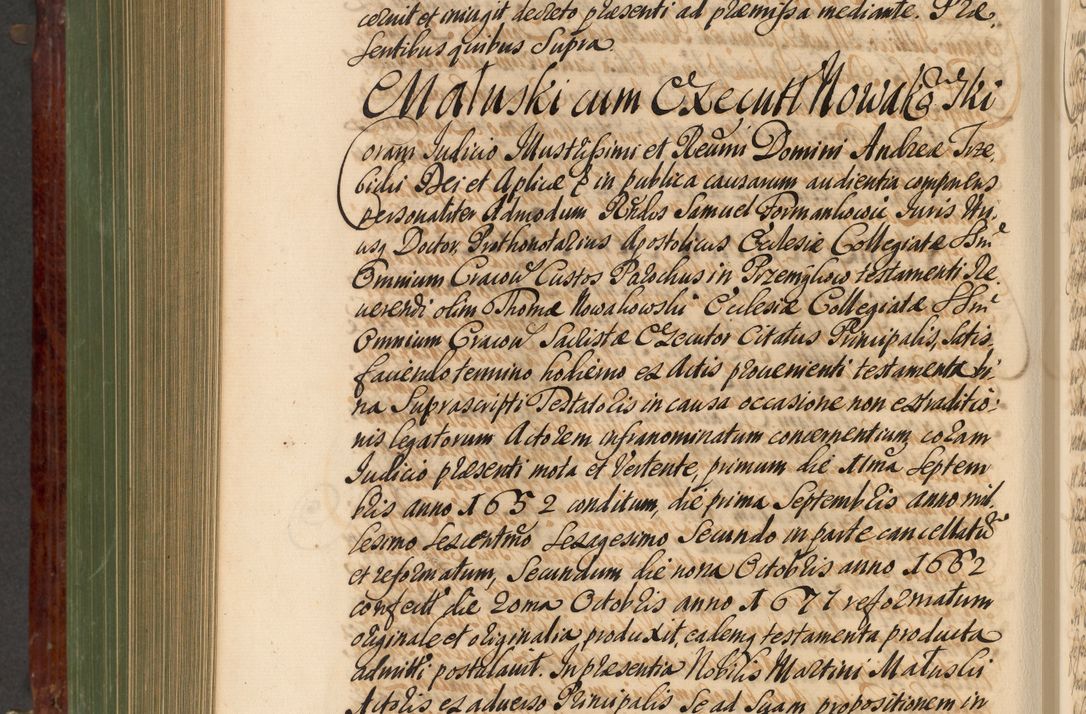 cernit et iniungit decreto præsenti ad præmissa mediante. Præ,
sentibus quibus Supra
Małuski cum Execut Nowakowski
Coram Iudicio Illustrissimi et Reumi Domini Andreæ Trze,
bicki Dei et Aplicæ &c in publica causarum audientia comparens
personaliter Admodum Rndus Samuel Formankowic Iuris Utr,
usq Doctor, Prothonotarius Apostolicus Ecclesiæ Collegiatæ SSm
Omnium Cracou Custos Parochus in Przemykow testamenti Re,
uerendi olim Thomæ Nowakowski Ecclesiæ Collegiatæ SSm
Omnium Cracou Sacristæ Executor Citatus Principalis, Satis,
faciendo termino hodierno ex Actis prouenienti testamenta bi,
na Suprascripti Testatoris in causa occasione non extraditio,
nis legatorum Actorem infranominatum concernentium, coram
Iudicio præsenti mota et Vertente, primum die 1ma Septem
bris anno 1652 conditum, die prima Septembris anno mil,
lesimo Sexcentmo Sexagesimo Secundo in parte cancellatū
et reformatum, Secundum die nona Octobris anno 1662
confect die 20ma Octobris anno 1677 reformatum
originale et originalia, produxit, eademq testamenta producta
admitti postulauit. In præsentia Nobilis Martini Małuski
Actoris ex aduerso Principalis Se ad Suam propositionem in